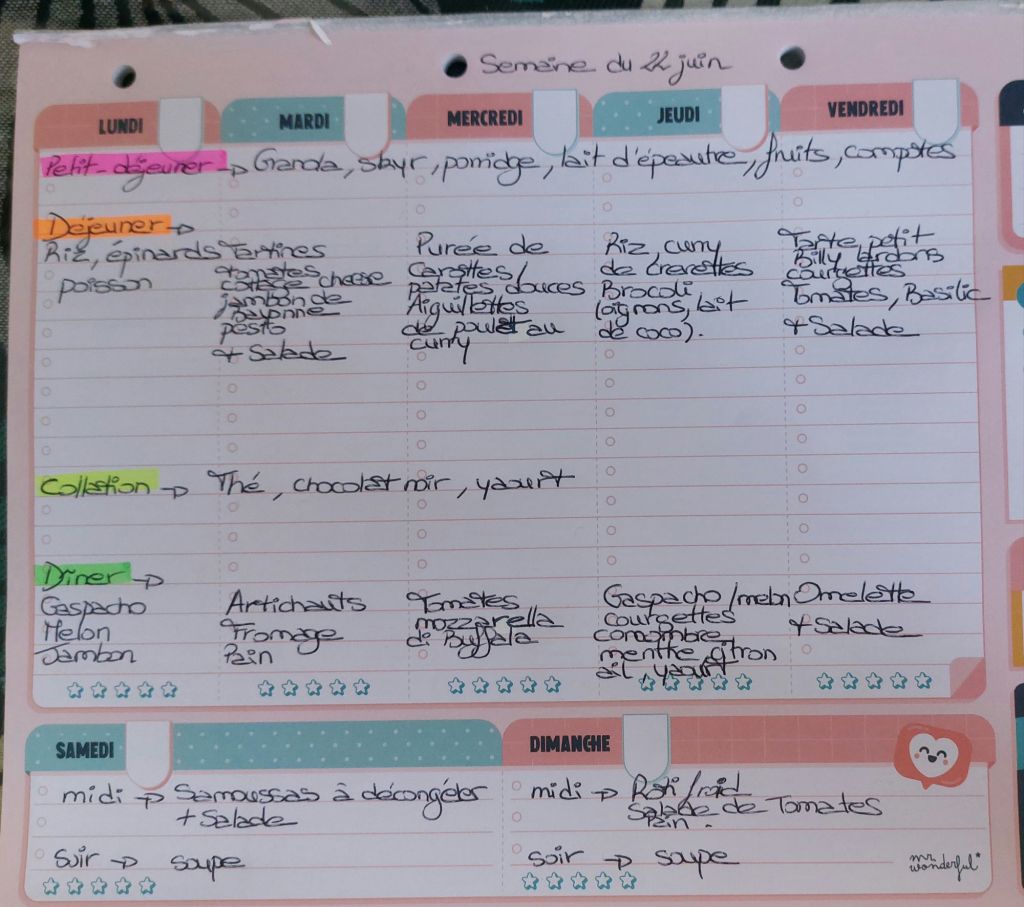 Semaine du 22 juin
LUNDI MARDI MERCREDI JEUDI VENDREDI
Petit-déjeuner → Granola, skyr, porridge, lait d'épeautre, fruits, compotes
Déjeuner →
Riz, épinards
poisson
Tartines
tomates
cottage cheese
jambon de
Bayonne
pesto
+ Salade
Purée de
Carottes/
patates douces
Aiguillettes
de poulet au
curry
Riz, curry
de crevettes
Brocoli
(oignons, lait
de coco).
Tarte petit
Billy lardons
courgettes
Tomates, Basilic
+ Salade
Collation → Thé, chocolat noir, yaourt
Dîner →
Gaspacho
Melon
Jambon
Artichauts
Fromage
Pain
Tomates
mozzarella
di Buffala
Gaspacho/melon
courgettes
concombre
menthe citron
ail, yaourt
Omelette
+ Salade
SAMEDI
midi → Samoussas à décongeler
+ Salade
soir → soupe
DIMANCHE
midi → Rôti froid
Salade de Tomates
Pain.
soir → soupe
mr. wonderful*